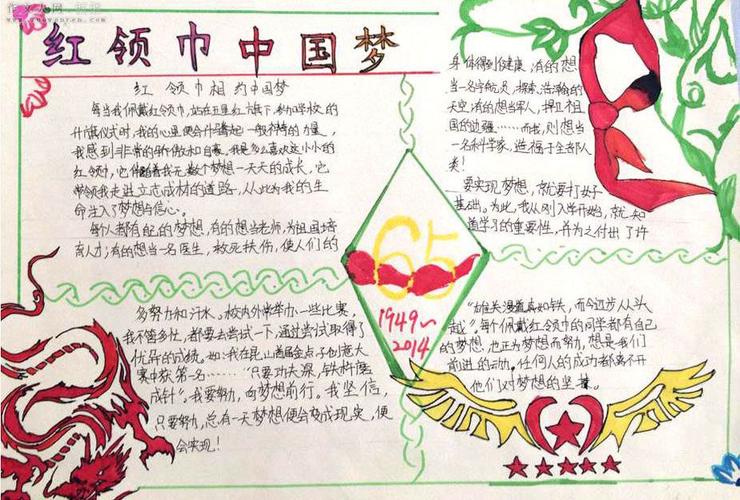 红领巾中国梦
红领巾相约中国梦
每当我佩戴红领巾,站在五星红旗下,参加学校的
升旗仪式时,我的心里便会升腾起一股神奇的力量,
我感到非常的骄傲和自豪。我是多么喜欢这小小的
红领巾,它伴随着我无数个梦想一天天的成长,它
带领我走进立志成材的道路,从此为我的生
命注入了梦想与信心。
每个人都有自己的梦想,有的想当老师,为祖国培
育人才;有的想当一名医生,救死扶伤,使人们的
身体得到健康;有的想
当一名宇航员,探索浩瀚的
天空;有的想当军人,捍卫祖
国的边疆……而我,则想当
一名科学家,造福于全部人
类!
要实现梦想,就要打好
基础。为此,我从刚入学开始,就知
道学习的重要性,并为之付出了许
多努力和汗水。校内外常举办一些比赛,
我不管多忙,都要去尝试一下,通过尝试取得了
优异的成绩。如:我在昆山首届金点子创意大
赛中获第一名……“只要功夫深,铁杵磨
成针”。我要努力,向梦想前行。我坚信,
只要努力,总有一天梦想便会变成现实,便
会实现!
65
1949~
2014
“雄关漫道真如铁,而今迈步从头
越”。每个佩戴红领巾的同学都有自己
的梦想,也正为梦想而努力,想是我们
前进的动力。任何人的成功都离不开
他们对梦想的坚